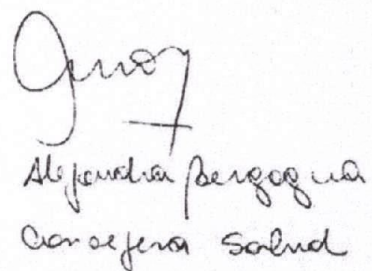 Alejandra Bergagna
Consejera Salud